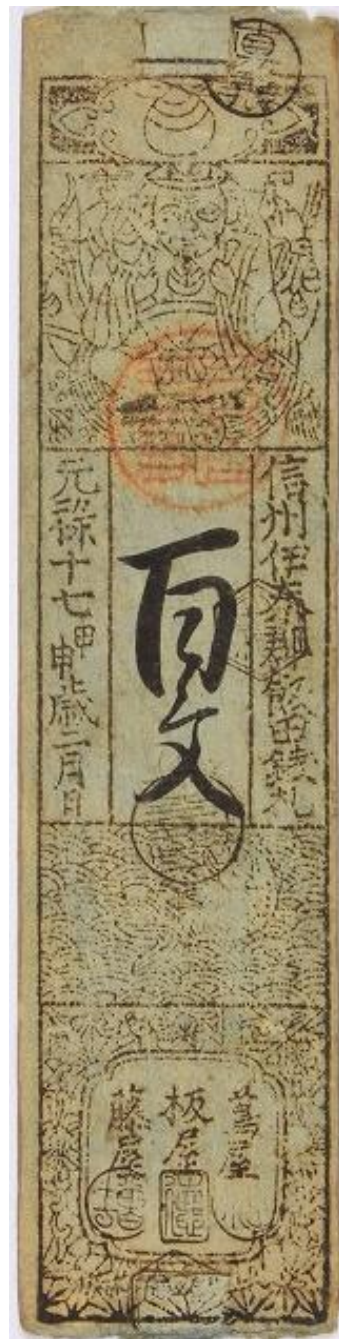 信州伊奈郡飯田銭札
百文
元禄十七甲申歳二月日
蔦屋
板屋
藤屋